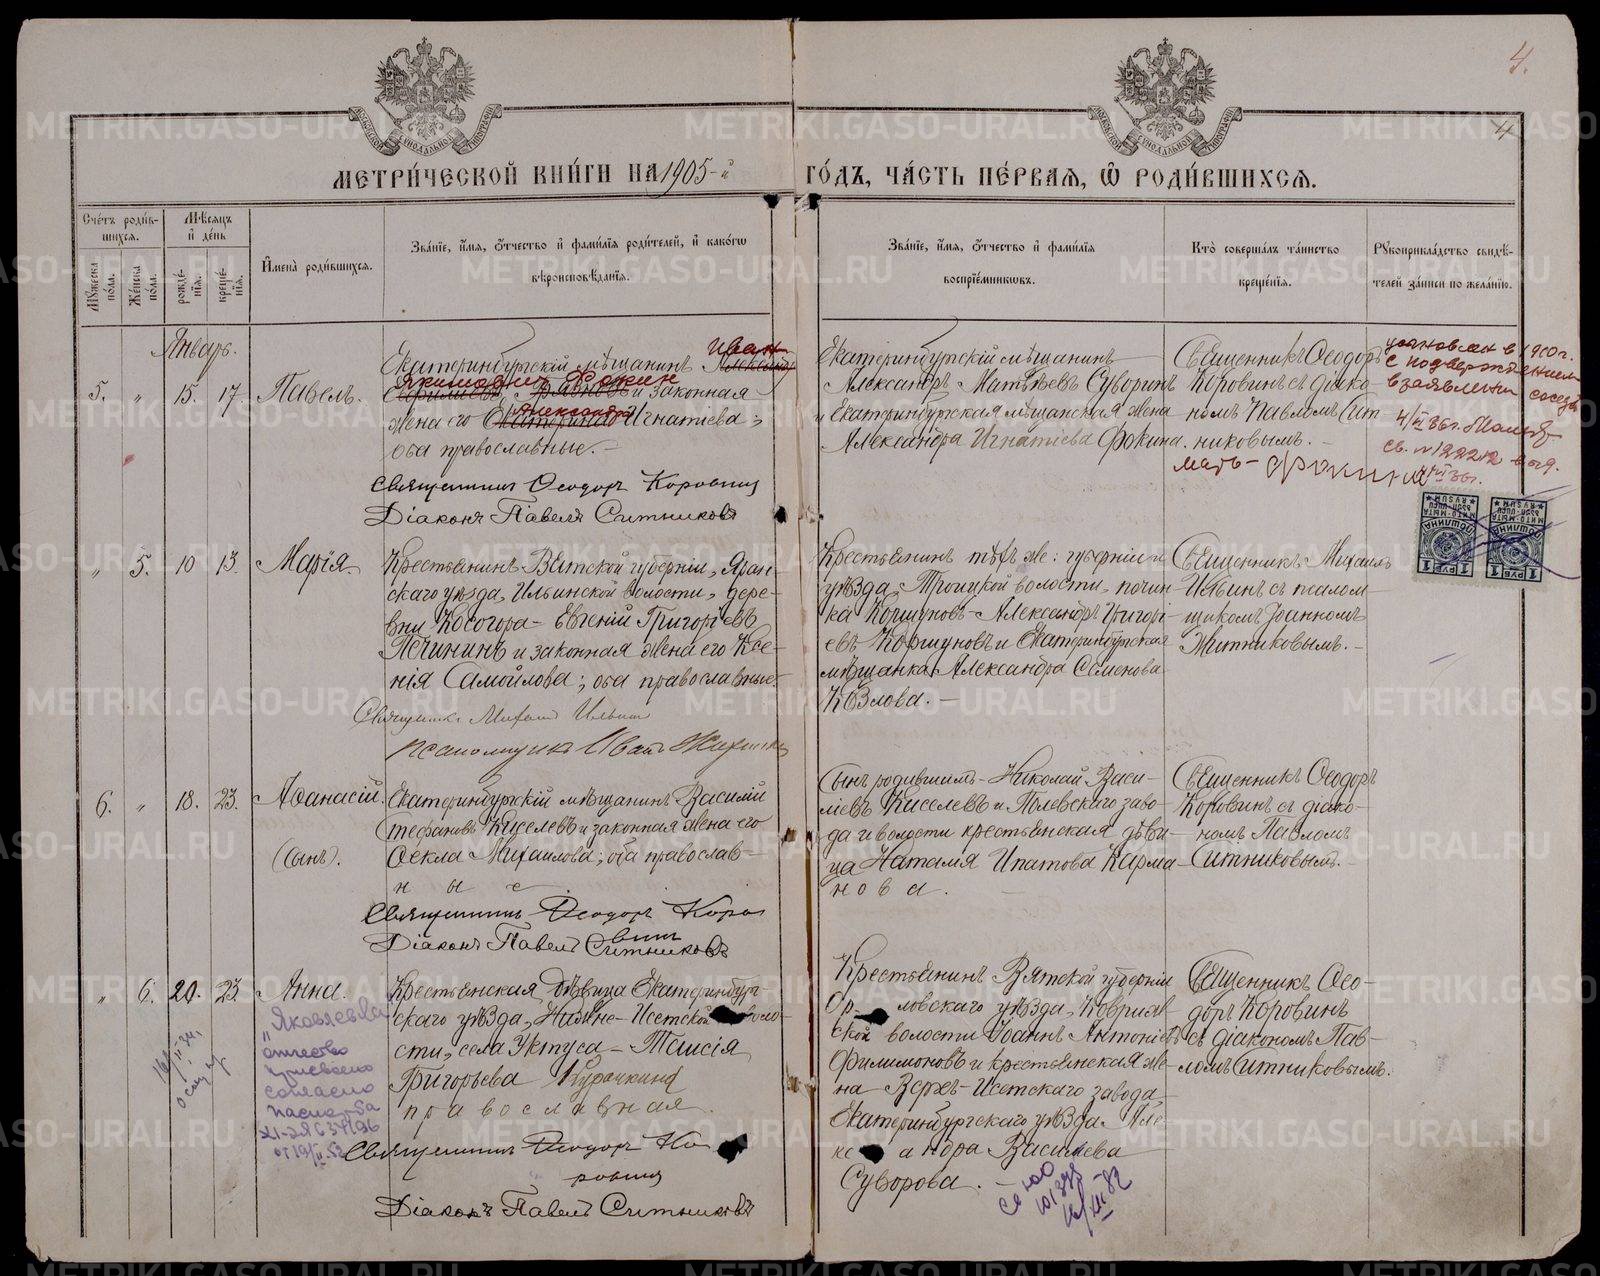 4.
4
МОСКОВСКОЙ СѴНОДАЛЬНОЙ ТИПОГРАФІИ
МОСКОВСКОЙ СѴНОДАЛЬНОЙ ТИПОГРАФІИ
МЕТРИ́ЧЕСКОЙ КНИ́ГИ НА 1905-й
ГО́ДЪ, ЧА́СТЬ ПЕ́РВАЯ, Ѿ РОДИ́ВШИХСЯ.
Сче́тъ роди́в-
шихся.
Мѣ́сяцъ
и́ де́нь
Мꙋ́жеска по́ла.
Же́нска по́ла.
рожде́-
нія.
креще́-
нія.
И҆мена̀ роди́вшихся.
Зва́ніе, и҆́мя, ѻ҆́тчество и҆ фами́лія роди́телей, и҆ како́гѡ
вѣроисповѣ́данія.
Зва́ніе, и҆́мя, ѻ҆́тчество и҆ фами́лія
воспріе́мниковъ.
Кто̀ соверша́лъ та́инство
креще́нія.
Рꙋкоприкла́дство свидѣ́-
телей за́писи по жела́нію.
Январь.
5. " 15. 17. Павелъ.
Екатеринбургскій мѣщанинъ Александръ
Иван
Якимович Фокин
и законная
жена его Екатерина Игнатіева;
Александра
оба православные.-
Священникъ Ѳеодоръ Коровинъ
Діаконъ Павелъ Ситниковъ
Екатеринбургскій мѣщанинъ
Александръ Матвѣевъ Суворинъ
и Екатеринбургская мѣщанская жена
Александра Игнатіева Фокина.
Священникъ Ѳеодоръ
Коровинъ съ діако-
номъ Павломъ Сит-
никовымъ.-
мать - Фокина
в 1900 г.
с подтверждением
в заявлении соседа
св. №122212
МИТО-МЫТА
ПОШЛИНА
1 РУБ 1
МИТО-МЫТА
ПОШЛИНА
1 РУБ 1
" 5. 10 13. Марія.
Крестьянинъ Вятской губерніи, Яран-
скаго уѣзда, Ильинской волости, дере-
вни Косогора - Евгеній Григорьевъ
Пѣчининъ и законная жена его Ксе-
нія Самойлова; оба православные.
Священникъ Михаилъ Ильинъ
псаломщикъ Иванъ Житников
Крестьянинъ тѣхъ же: губерніи и
уѣзда, Троицкой волости, почин-
ка Коршуновъ - Александръ Григорі-
евъ Коршуновъ и Екатеринбургская
мѣщанка Александра Семенова
Козлова.-
Священникъ Михаилъ
Ильинъ съ псалом-
щикомъ Іоанномъ
Житниковымъ.-
6. " 18. 23. Аѳанасій.
(сынъ).
Екатеринбургскій мѣщанинъ Василій
Стефановъ Киселевъ и законная жена его
Ѳекла Михаилова; оба православ-
ные
Священникъ Ѳеодоръ Коро
винъ
Діаконъ Павелъ Ситниковъ
Сынъ родившимъ - Николай Васи-
ліевъ Киселевъ и Полевскаго заво-
да и волости крестьянская дѣви-
ца Наталія Ипатова Карма-
нова.
Священникъ Ѳеодоръ
Коровинъ съ діако-
номъ Павломъ
Ситниковымъ.-
" 6. 20. 23. Анна.
Яковлевна
отчество
присвоено
согласно
Крестьянская дѣвица Екатеринбург-
скаго уѣзда, Нижне-Исетской воло-
сти, села Уктуса - Таисія
Григорьева Курочкина
православная.
Священникъ Ѳеодоръ Ко
ровинъ
Діаконъ Павелъ Ситниковъ
Крестьянинъ Вятской губерніи
Орловскаго уѣзда, Коврига-
ской волости Іоаннъ Антоніевъ
Филимоновъ и крестьянская же-
на Верхъ-Исетскаго завода,
Екатеринбургскаго уѣзда Але-
ксандра Василіева
Суворова.-
Священникъ Ѳео-
доръ Коровинъ
съ діакономъ Пав-
ломъ Ситниковымъ.
METRIKI.GASO-URAL.RU